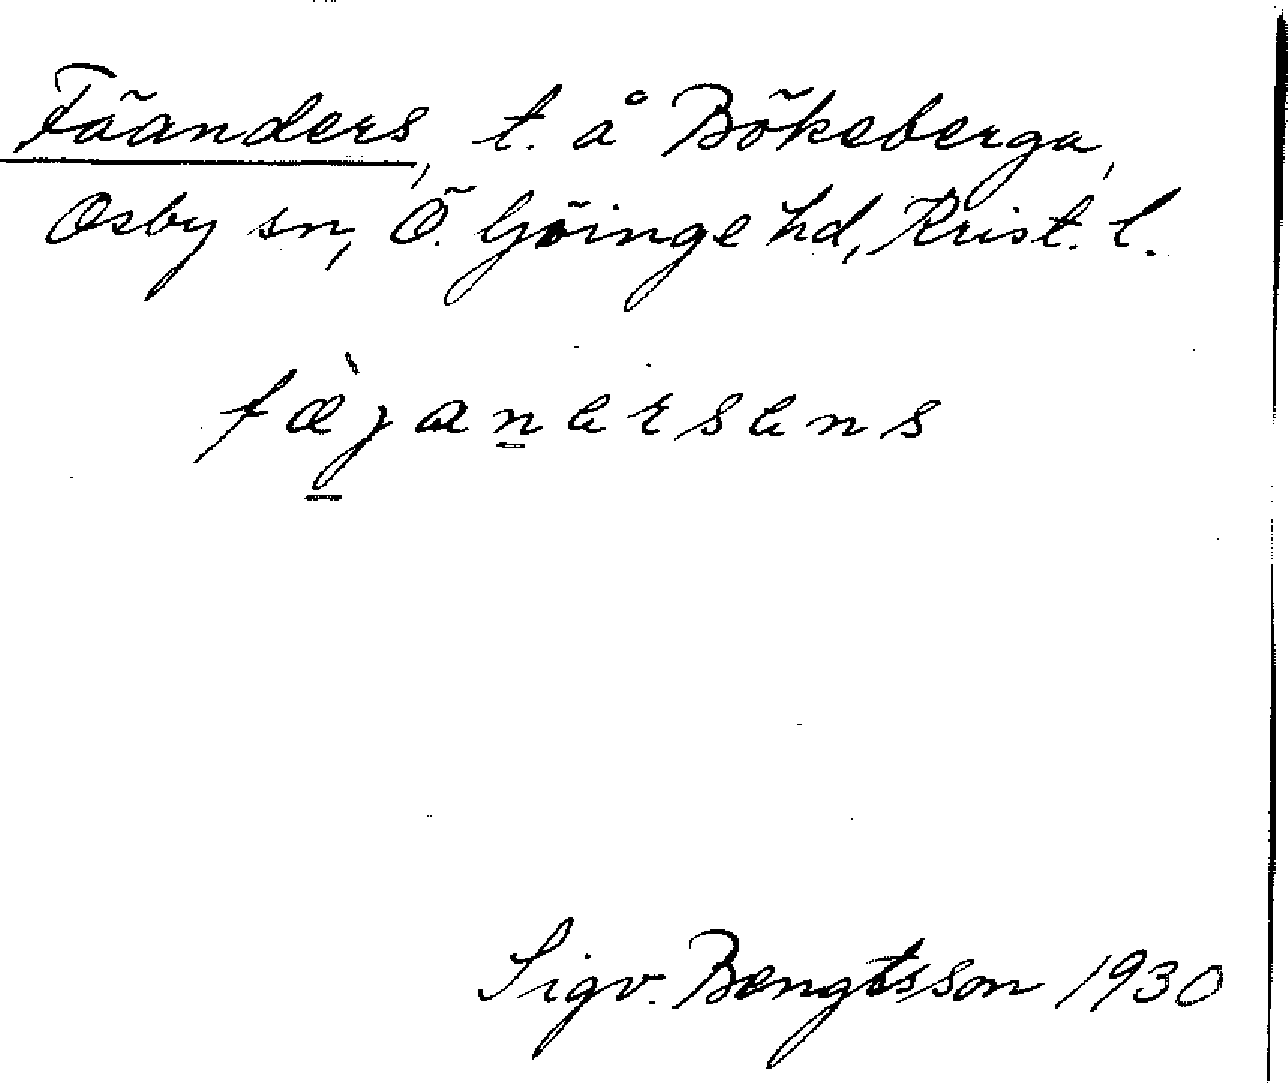 Fäanders, t. å Bökeberga,
Osby sn, Ö. Göinge hd, Krist. l.
fæ̀janersens
Sigv. Bengtsson 1930